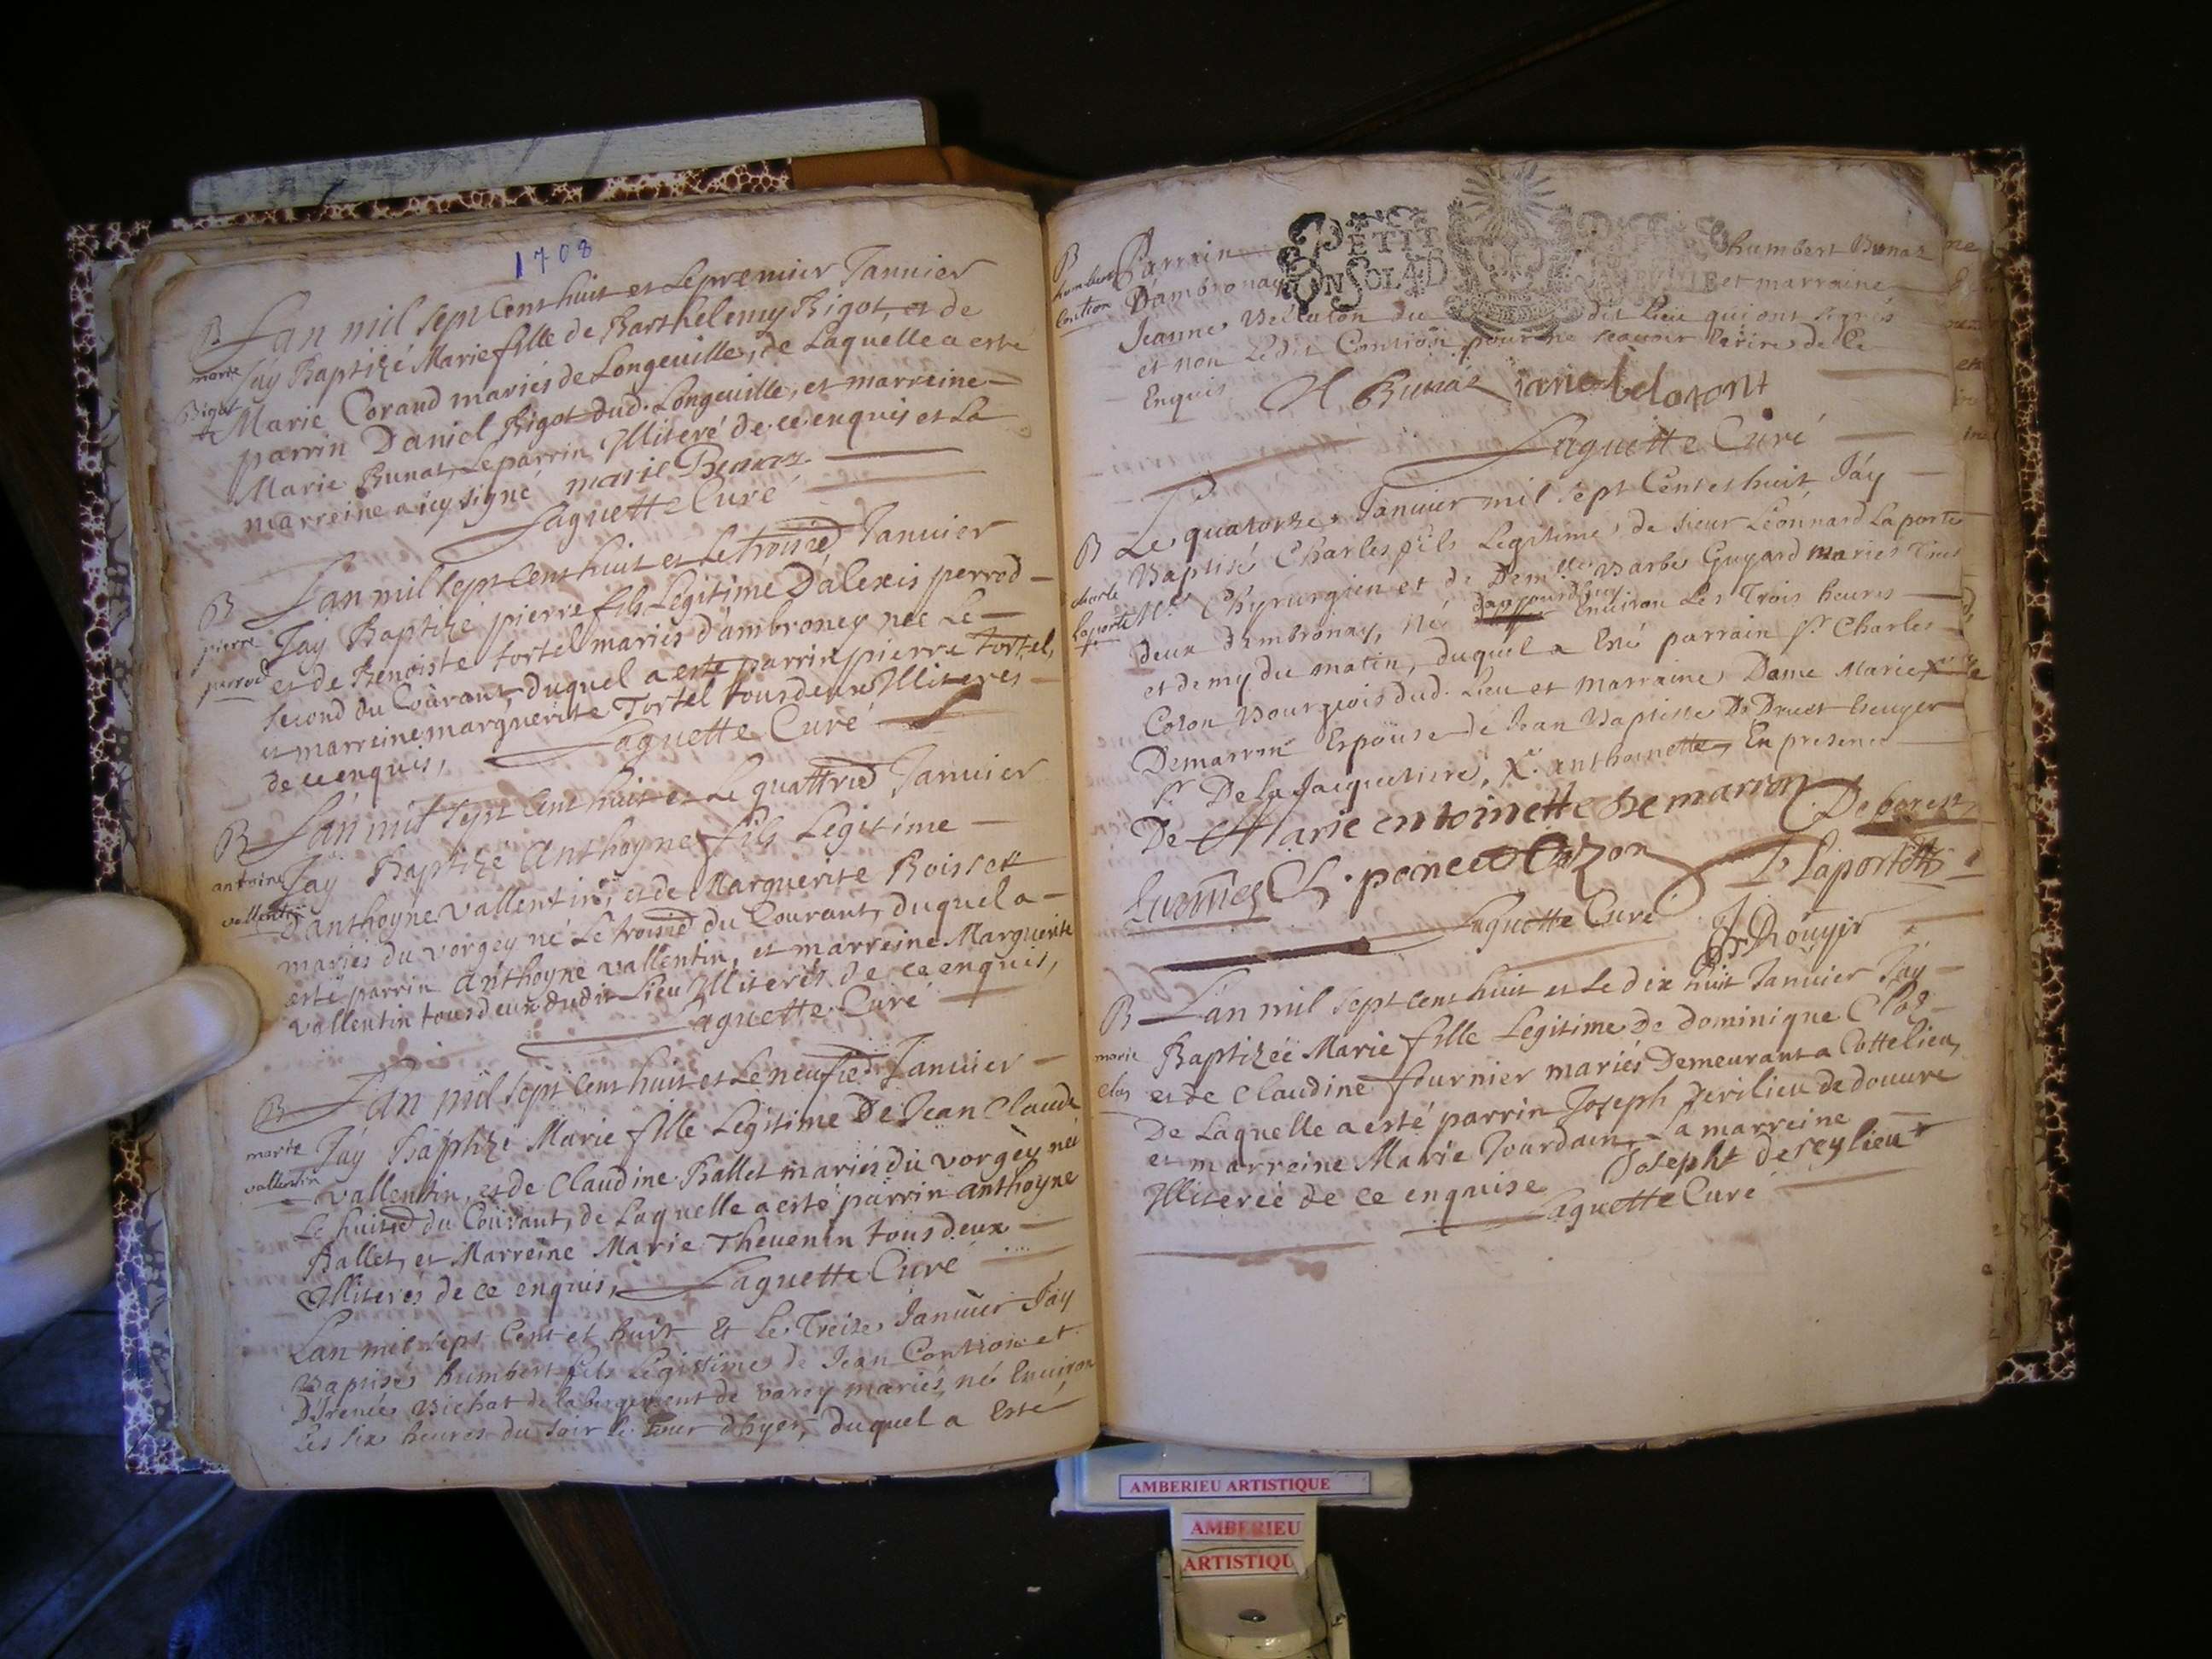 1708
B Lan mil sept Cent huit et Le premier Janvier
marie Jay Baptizé Marie fille de Barthelemy Bigot, et de
Bigot Marie Corand mariés de Longeuille, de Laquelle a esté
parrin Daniel Bigot dud. Longeuille, et marreine
Marie Bunat, Le parrin Illiteré de ce enquis et La
marreine a icy signé marie
Laguette Curé
B Lan mil sept Cent huit et Le troisied Januier
pierre Jay Baptizé pierre fils Legitime D'alexis perrod
perrod et de Benoiste tortel mariés d'ambroney né Le
second du Courant, duquel a esté parrin pierre Tortel,
et marreine marguerite Tortel tous deux Illiteres
de ce enquis, Laguette Curé
B Lan mil sept Cent huit et Le quattried Januier
antoine Jay Baptize Anthoyne fils Legitime
vallentin d'anthoyne vallentin, et de Marguerite Boisset
mariés du vorgey né Le troisied du Courant, duquel a
esté parrin anthoyne vallentin, et marreine Marguerite
vallentin tous deux dudit Lieu Illiterés de ce enquis,
Laguette Curé
B Lan mil sept Cent huit et Le neufied Januier
marie Jay Baptizé Marie fille Legitime De Jean Claude
vallentin vallentin, et de Claudine Ballet mariés du vorgey née
Le huitied du Courant, de Laquelle a esté parrin anthoyne
Ballet, et Marreine Marie Theuenin tous deux
Illiterés de ce enquis, Laguette Curé
Lan mil sept Cent et huit & Le Treize Januier Jay
Baptisé humbert fils Legistime de Jean Contion et
D'Irenée Bichat de labergement de varey mariés, né Enuiron
Les six heures du soir le Jour dhyer, duquel a Esté
B Parrain PETIT humbert Bunaz
humbert D'ambronay ON SOLẠD et marraine
Contion Jeanne du dit Lieu qui ont signés
et non Ledit Contion pour ne scauoir Ecrire de Ce
Enquis H Bunaz
Laguette Curé
B Le quatorze Januier mil sept Cent et huit Jáy
charle Baptisé Charles fils Legitime de sieur Leonnard Laporte
Laporte Mre Chyrurgien et de Demlle Barbe Guyard mariés Tous
deux dambronay, Né daujourdhuy Enuiron Les Trois heures
et demy du matin, duquel a Esté parrain Sr Charles
Cozon Bourgeois dud. Lieu et marraine Dame Marie X
Demarron Espouse de Jean Baptiste De Druet Escuyer
Sr De La Jacquetiere, X. anthoinette, En presence
De Marie entoinette De marron
C. poncet Cozon L Laporte
Laguette Curé J Rouyer
B Lán mil sept Cent huit et Le dix huit Januier Jay
marie Baptizée Marie fille Legitime De dominique Clos
clos et de Claudine fournier mariés Demeurant a Cottelieu,
De Laquelle a esté parrin Joseph Derilieu de douure
et marreine Marie Jourdain, La marreine
Illiterée de ce enquise Josepht dereylieu
Laguette Curé
AMBERIEU ARTISTIQUE
AMBERIEU
ARTISTIQU